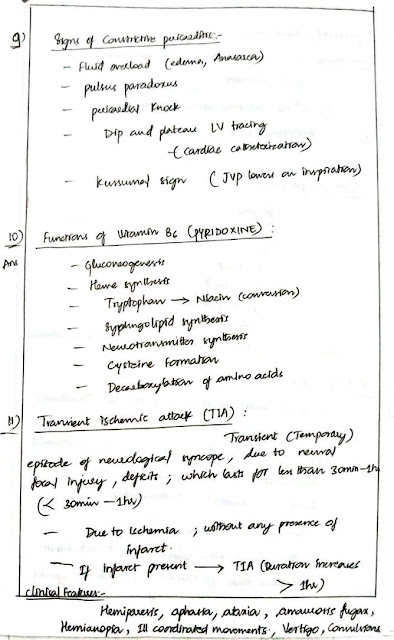 9) Signs of Constrictive pericarditis:-
- Fluid overload (edema, Anasarca)
- pulsus paradoxus
- pericardial knock
- Dip and plateau LV tracing
- (cardiac catheterization)
- Kussumal sign ( JVP lowers on inspiration)
10) Functions of Vitamin B6 (PYRIDOXINE) :
Ans
- Gluconeogenesis
- Heme synthesis
- Tryptophan → Niacin (conversion)
- Syphngolipid synthesis
- Neurotransmitter synthesis
- Cysteine Formation
- Decarboxylation of amino acids
11) Transient ischemic attack (TIA) :
Transient (Temporary)
episode of neurological syncope, due to neural
focal injury, deficits ; which lasts for less than 30min-1h
(< 30min - 1hr)
- Due to Ischemia ; without any presence of
infarct.
- If infarct present → TIA (Duration increases
> 1hr)
clinical features:-
Hemiparesis, aphasia, ataxia, amaurosis fugax,
Hemianopia, Ill coordinated movements, Vertigo, Convulsions